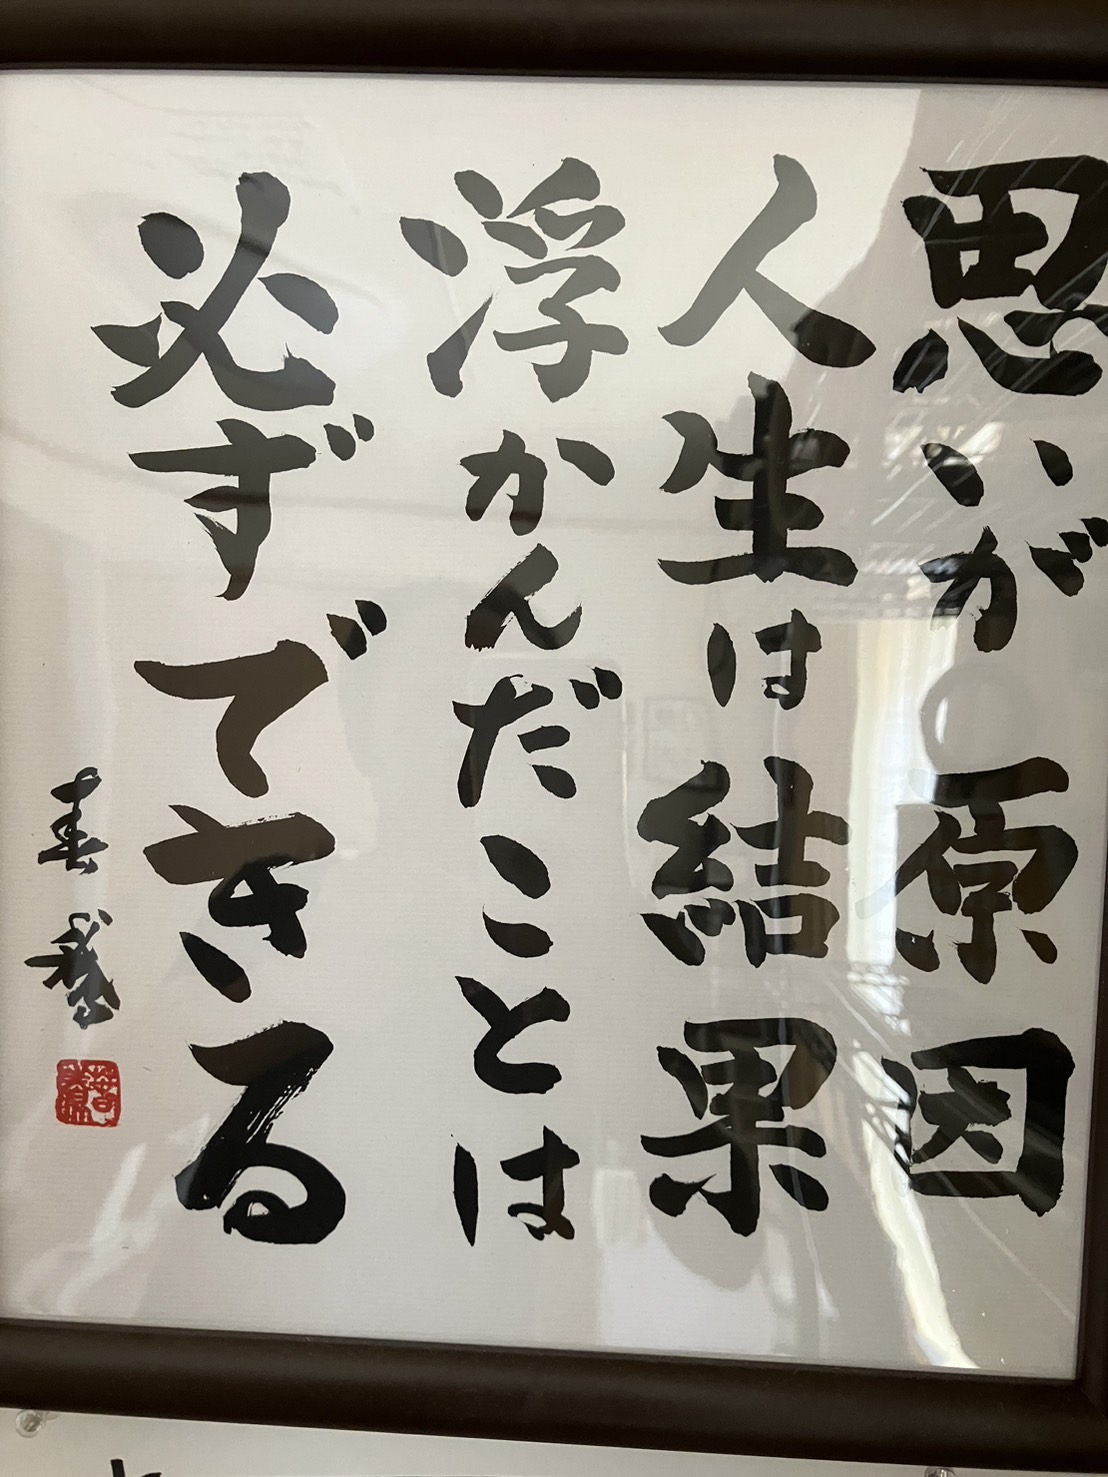 思いが原因
人生は結果
浮かんだことは
必ずできる